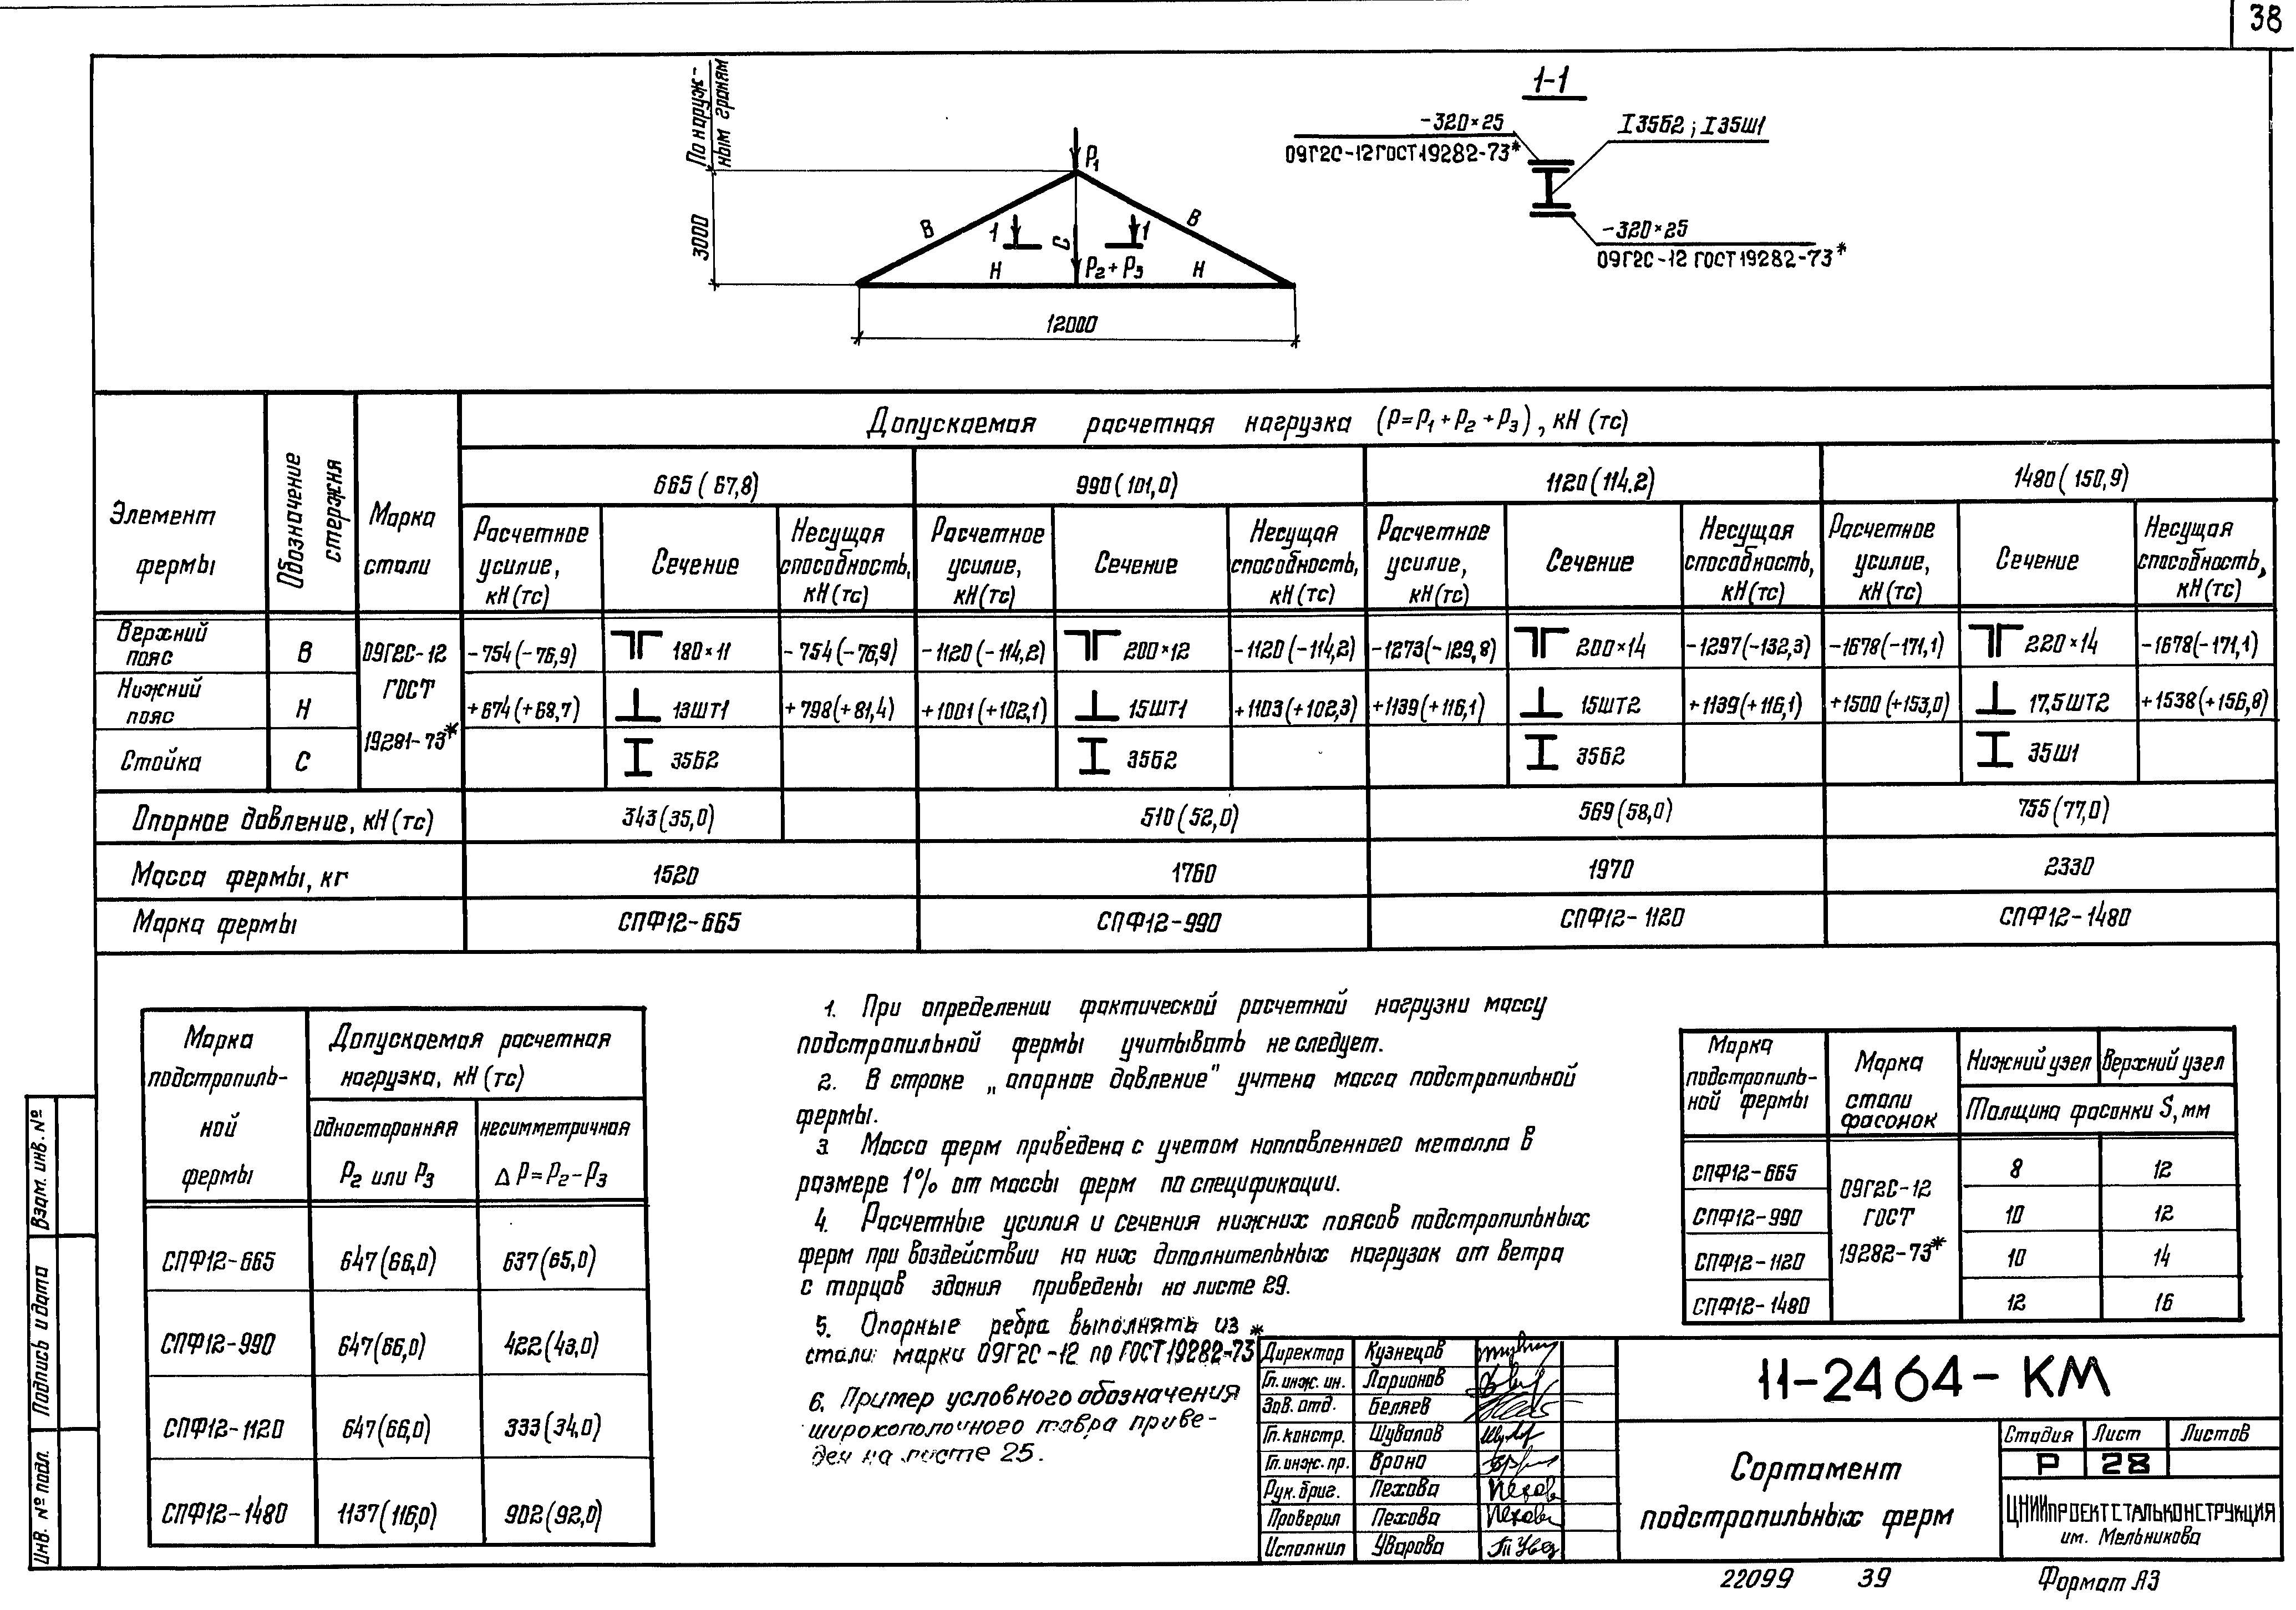 38
По наруж-
ным граням
3000
P₁
В
В
1
1
С
Н
P₂+P₃
Н
12000
1-1
-320×25
09Г2С-12 ГОСТ 19282-73*
I35Б2; I35Ш1
-320×25
09Г2С-12 ГОСТ 19282-73*
Элемент фермы
Обозначение стержня
Марка стали
Допускаемая расчетная нагрузка (P=P₁+P₂+P₃), кН (тс)
665 (67,8) 990 (101,0) 1120 (114.2) 1480 (150,9)
Расчетное усилие, кН (тс) Сечение Несущая способность, кН (тс) Расчетное усилие, кН (тс) Сечение Несущая способность, кН (тс) Расчетное усилие, кН (тс) Сечение Несущая способность, кН (тс) Расчетное усилие, кН (тс) Сечение Несущая способность, кН (тс)
Верхний пояс В 09Г2С-12 ГОСТ 19281-73* -754 (-76,9) 180×11 -754 (-76,9) -1120 (-114,2) 200×12 -1120 (-114,2) -1273 (-129,8) 200×14 -1297 (-132,3) -1678 (-171,1) 220×14 -1678 (-171,1)
Нижний пояс Н +674 (+68,7) 13ШТ1 +798 (+81,4) +1001 (+102,1) 15ШТ1 +1103 (+102,3) +1139 (+116,1) 15ШТ2 +1139 (+116,1) +1500 (+153,0) 17,5ШТ2 +1538 (+156,8)
Стойка С 35Б2 35Б2 35Б2 35Ш1
Опорное давление, кН (тс) 343 (35,0) 510 (52,0) 569 (58,0) 755 (77,0)
Масса фермы, кг 1520 1760 1970 2330
Марка фермы СПФ12-665 СПФ12-990 СПФ12-1120 СПФ12-1480
Марка подстропиль-ной фермы
Допускаемая расчетная
нагрузка, кН (тс)
односторонняя несимметричная
P₂ или P₃ Δ P=P₂-P₃
СПФ12-665 647 (66,0) 637 (65,0)
СПФ12-990 647 (66,0) 422 (43,0)
СПФ12-1120 647 (66,0) 333 (34,0)
СПФ12-1480 1137 (116,0) 902 (92,0)
1. При определении фактической расчетной нагрузки массу
подстропильной фермы учитывать не следует.
2. В строке „опорное давление" учтена масса подстропильной
фермы.
3. Масса ферм приведена с учетом наплавленного металла в
размере 1% от массы ферм по спецификации.
4. Расчетные усилия и сечения нижних поясов подстропильных
ферм при воздействии на них дополнительных нагрузок от ветра
с торцов здания приведены на листе 29.
5. Опорные ребра выполнять из
стали марки 09Г2С-12 по ГОСТ 19282-73*
6. Пример условного обозначения
широкополочного тавра приве-
ден на листе 25.
Марка подстропиль-ной фермы
Марка стали фасонок
Нижний узел Верхний узел
Толщина фасонки S, мм
СПФ12-665 8 12
СПФ12-990 10 12
СПФ12-1120 10 14
СПФ12-1480 12 16
09Г2С-12
ГОСТ
19282-73*
Директор Кузнецов
Гл. инж. ин. Ларионов
Зав. отд. Беляев
Гл. констр. Шувалов
Гл. инж. пр. Врона
Рук. бриг. Пехова
Проверил Пехова
Исполнил Уварова
11-2464-КМ
Сортамент
подстропильных ферм
Стадия Лист Листов
Р 28
ЦНИИПРОЕКТСТАЛЬКОНСТРУКЦИЯ
им. Мельникова
Взам. инв. №
Подпись и дата
Инв. № подл.
22099 39 Формат А3